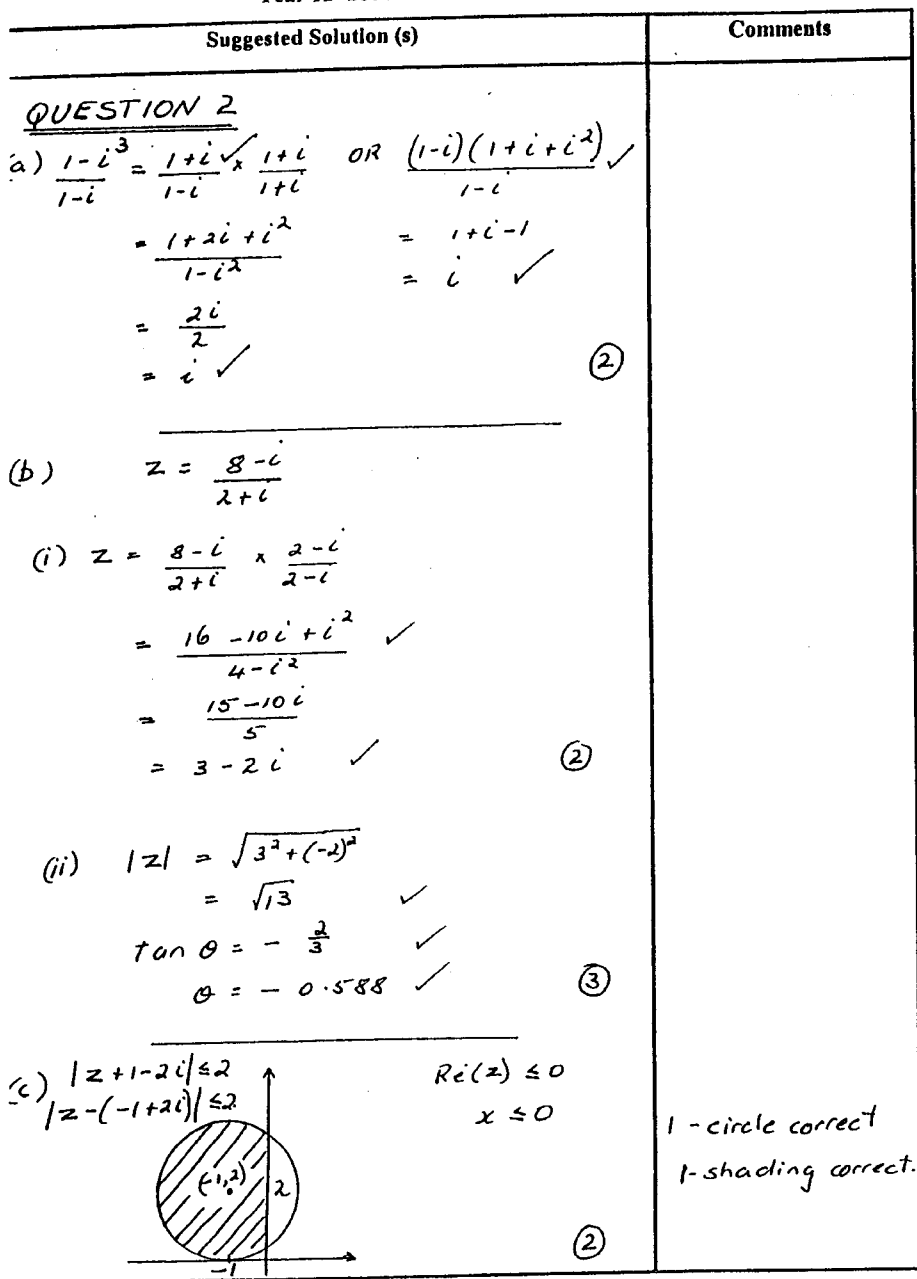 Suggested Solution (s)
Comments
QUESTION 2
a) 1-i³/1-i = 1+i/1-i ✓ × 1+i/1+i OR (1-i)(1+i+i²)/1-i ✓
= 1+2i+i²/1-i² = 1+i-1
= 2i/2 = i ✓
= i ✓ ②
(b) z = 8-i/2+i
(i) z = 8-i/2+i × 2-i/2-i
= 16-10i+i²/4-i² ✓
= 15-10i/5
= 3-2i ✓ ②
(ii) |z| = √3²+(-2)²
= √13 ✓
tan θ = - 2/3 ✓
θ = - 0.588 ✓ ③
(c) |z+1-2i| ≤ 2 Re(z) ≤ 0
|z-(-1+2i)| ≤ 2 x ≤ 0
1 - circle correct
1 - shading correct.
(-1,2) 2
②
-1